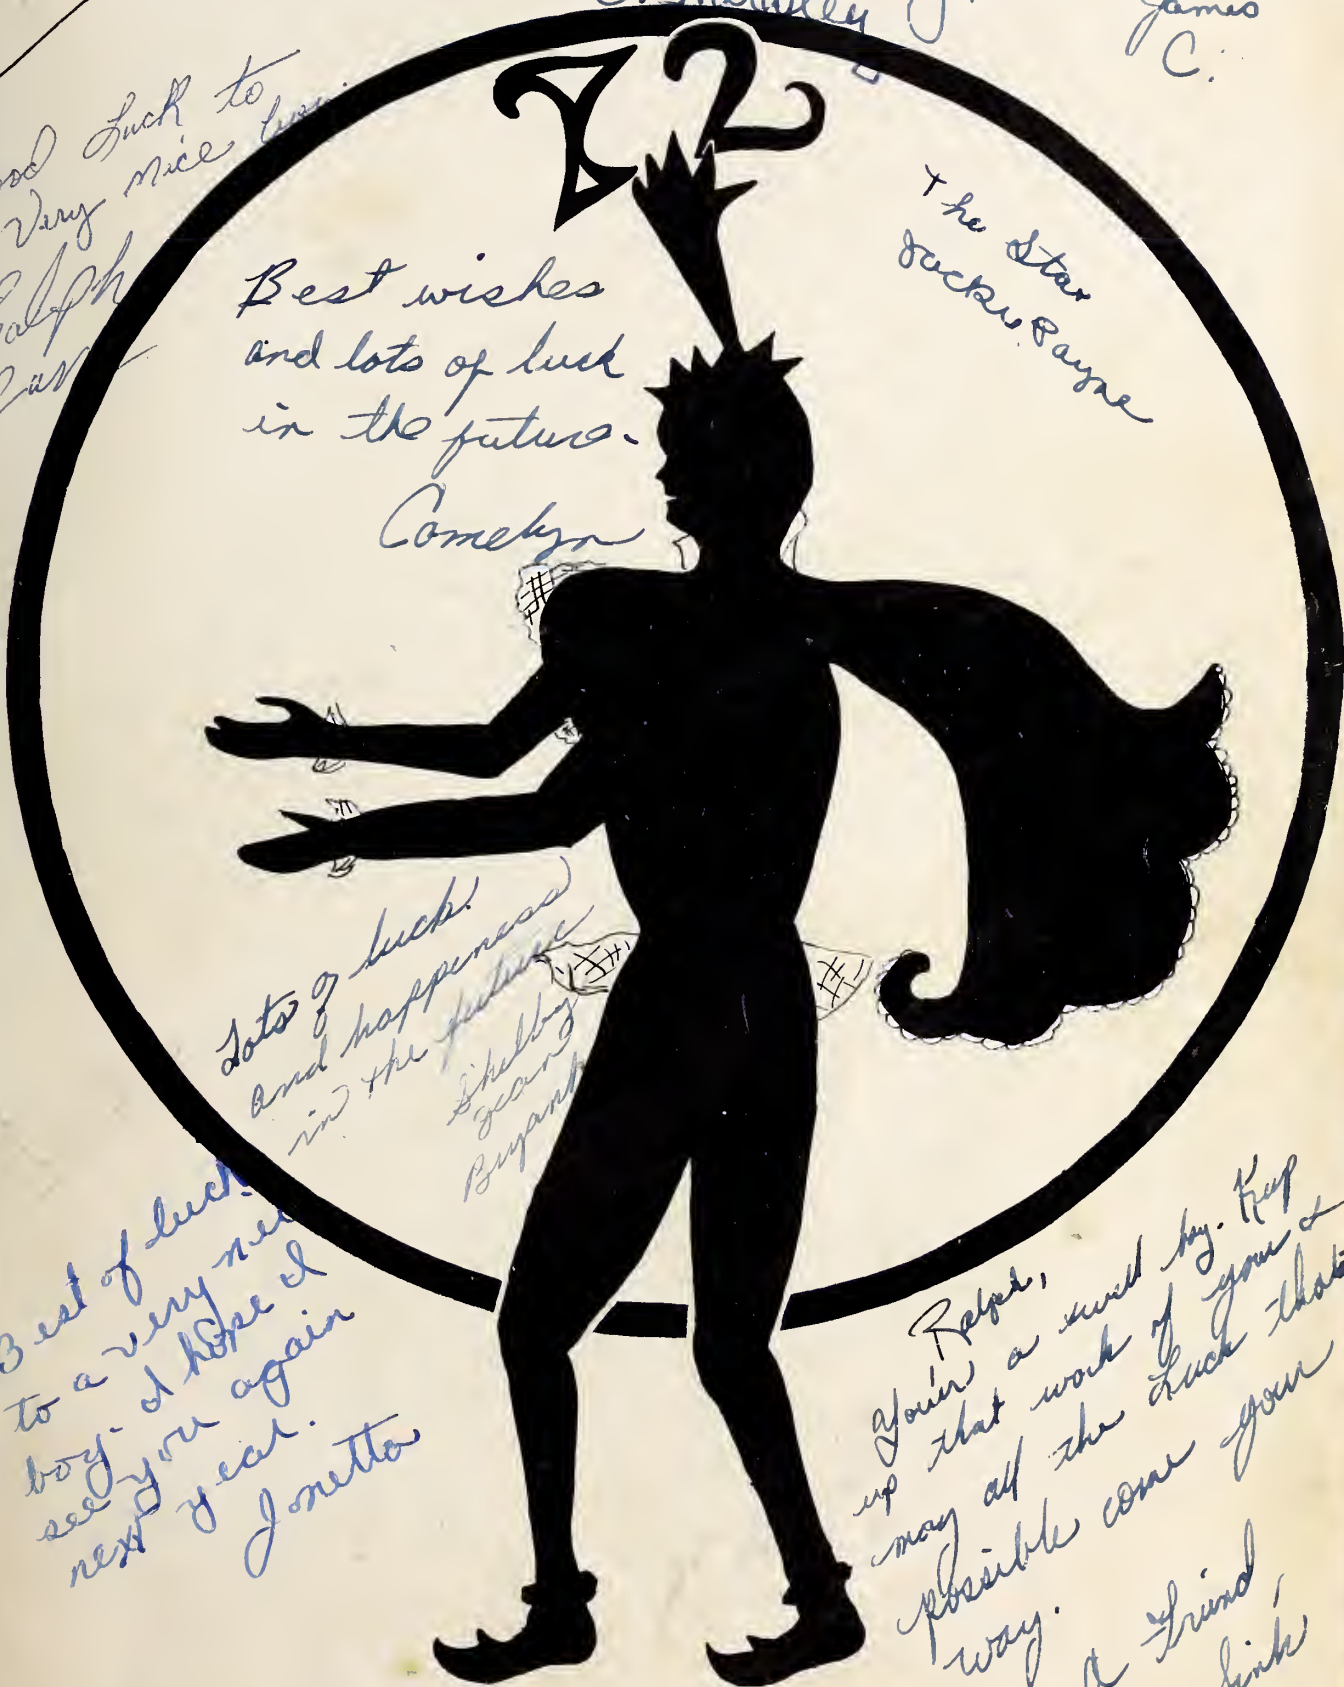 James
C.
72
Luck to
Very nice
Ralph
Best wishes
and lots of luck
in the future.
Comelyn
The Star
Jackie Payne
Lots of luck
and happiness
in the future
Shelby
Jean
Bryant
Best of luck
to a very nice
boy. I hope I
see you again
next year.
Jonetta
Ralph,
You're a swell boy. Keep
up that work of your &
may all the Luck that
possible come your
way.
A Friend,